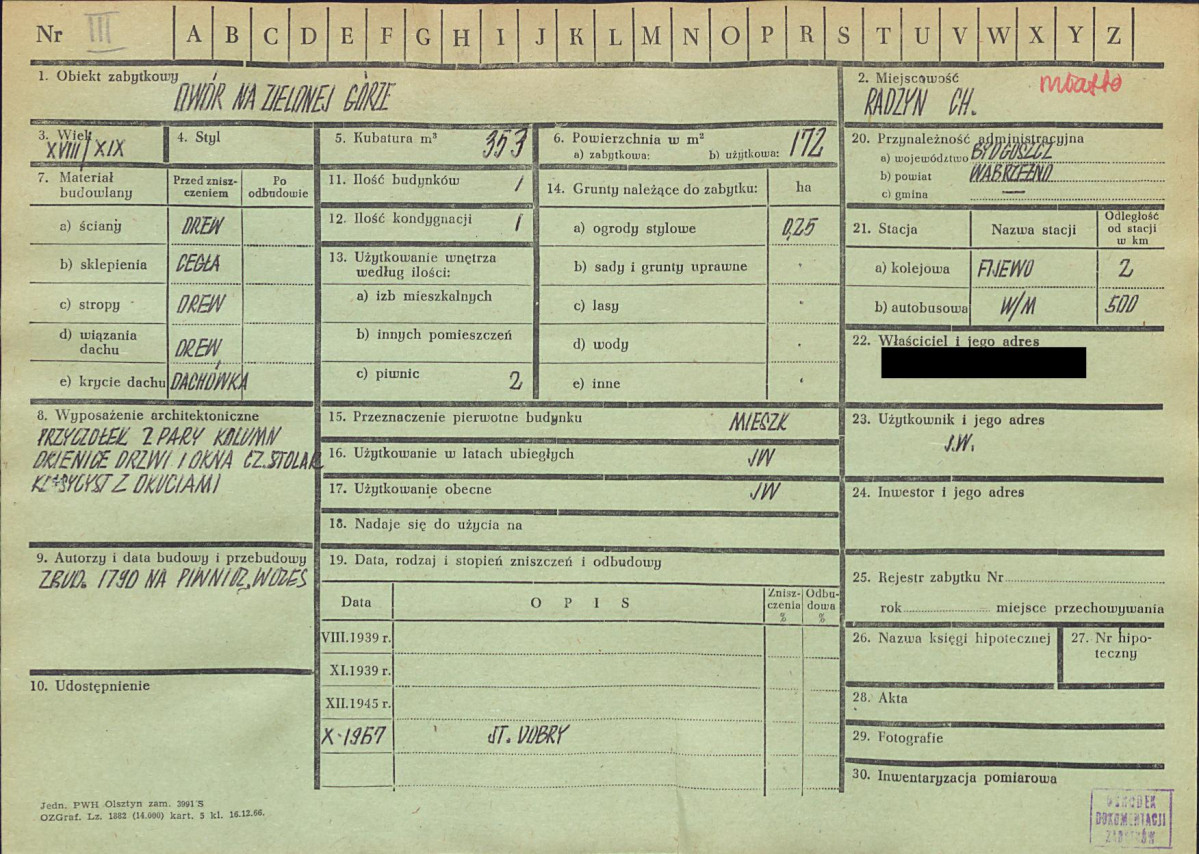 Nr III A B C D E F G H I J K L M N O P R S T U V W X Y Z
1. Obiekt zabytkowy
DWÓR NA ZIELONEJ GÓRZE
2. Miejscowość miasto
RADZYN CH.
3. Wiek
XVIII/XIX
4. Styl
5. Kubatura m³ 353
6. Powierzchnia w m²
a) zabytkowa: b) użytkowa: 172
7. Materiał budowlany
Przed zniszczeniem
Po odbudowie
a) ściany DREW
b) sklepienia CEGŁA
c) stropy DREW
d) wiązania dachu DREW
e) krycie dachu DACHÓWKA
8. Wyposażenie architektoniczne
PRZYCZÓŁEK 2 PARY KOLUMN
OKIENICE DRZWI I OKNA CZ. STOLAR
KLASYCYST Z OKUCIAMI
9. Autorzy i data budowy i przebudowy
ZBUD. 1790 NA
10. Udostępnienie
11. Ilość budynków 1
12. Ilość kondygnacji 1
13. Użytkowanie wnętrza
według ilości:
a) izb mieszkalnych
b) innych pomieszczeń
c) piwnic 2
14. Grunty należące do zabytku: ha
a) ogrody stylowe 0,25
b) sady i grunty uprawne
c) lasy
d) wody
e) inne
15. Przeznaczenie pierwotne budynku MIESZK
16. Użytkowanie w latach ubiegłych JW
17. Użytkowanie obecne JW
18. Nadaje się do użycia na
19. Data, rodzaj i stopień zniszczeń i odbudowy
Data
OPIS
Zniszczenia %
Odbudowa %
VIII.1939 r.
XI.1939 r.
XII.1945 r.
X-1967 ST. DOBRY
20. Przynależność administracyjna
a) województwo BYDGOSZCZ
b) powiat WĄBRZEŹNO
c) gmina —
21. Stacja
Nazwa stacji
Odległość od stacji w km
a) kolejowa FIJEWO 2
b) autobusowa W/M 500
22. Właściciel i jego adres
23. Użytkownik i jego adres
J.W.
24. Inwestor i jego adres
25. Rejestr zabytku Nr
rok miejsce przechowywania
26. Nazwa księgi hipotecznej
27. Nr hipoteczny
28. Akta
29. Fotografie
30. Inwentaryzacja pomiarowa
Jedn. PWH Olsztyn zam. 3991 S
OZGraf. Lz. 1882 (14.000) kart. 5 kl. 16.12.66.
OŚRODEK
DOKUMENTACJI
ZABYTKÓW